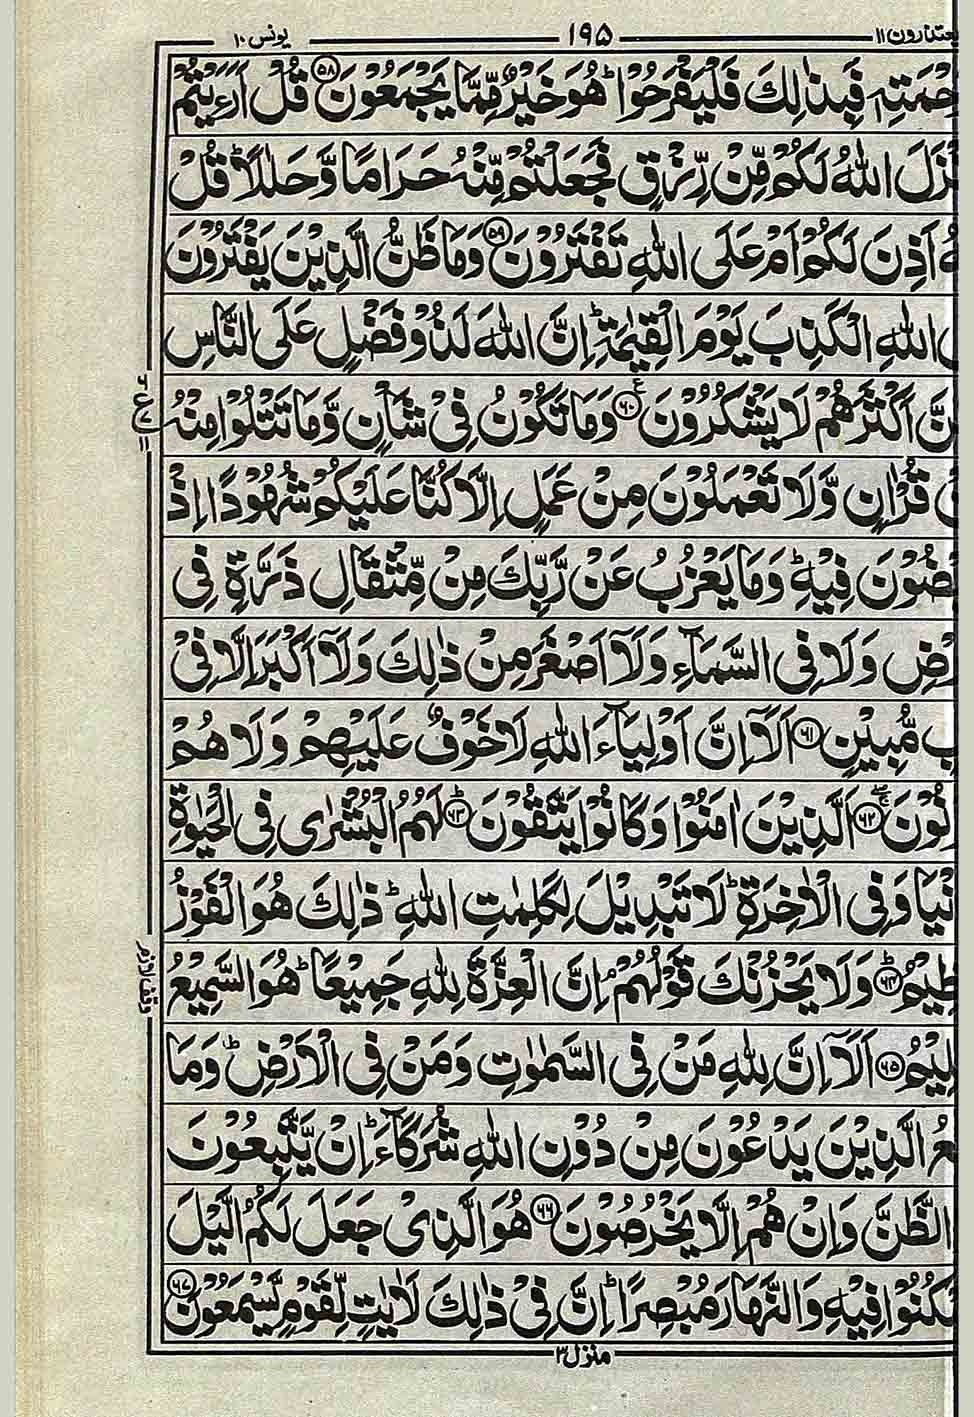 یعتذرون ۱۱ ۱۹۵ یونس ۱۰
فَبِذٰلِكَ فَلْيَفْرَحُوْا ؕ هُوَ خَيْرٌ مِّمَّا يَجْمَعُوْنَ ﴿۵۸﴾ قُلْ اَرَءَيْتُمْ
اللّٰهُ لَكُمْ مِّنْ رِّزْقٍ فَجَعَلْتُمْ مِّنْهُ حَرَامًا وَّحَلٰلًا ؕ قُلْ
اَذِنَ لَكُمْ اَمْ عَلَى اللّٰهِ تَفْتَرُوْنَ ﴿۵۹﴾ وَمَا ظَنُّ الَّذِيْنَ يَفْتَرُوْنَ
اللّٰهِ الْكَذِبَ يَوْمَ الْقِيٰمَةِ ؕ اِنَّ اللّٰهَ لَذُوْ فَضْلٍ عَلَى النَّاسِ
اَكْثَرَهُمْ لَا يَشْكُرُوْنَ ﴿۶۰﴾ ع وَمَا تَكُوْنُ فِيْ شَاْنٍ وَّمَا تَتْلُوْا مِنْهُ
قُرْاٰنٍ وَّلَا تَعْمَلُوْنَ مِنْ عَمَلٍ اِلَّا كُنَّا عَلَيْكُمْ شُهُوْدًا اِذْ
فِيْهِ ؕ وَمَا يَعْزُبُ عَنْ رَّبِّكَ مِنْ مِّثْقَالِ ذَرَّةٍ فِي
وَلَا فِي السَّمَآءِ وَلَاۤ اَصْغَرَ مِنْ ذٰلِكَ وَلَاۤ اَكْبَرَ اِلَّا فِيْ
مُّبِيْنٍ ﴿۶۱﴾ اَلَاۤ اِنَّ اَوْلِيَآءَ اللّٰهِ لَا خَوْفٌ عَلَيْهِمْ وَلَا هُمْ
﴿۶۲﴾ الَّذِيْنَ اٰمَنُوْا وَكَانُوْا يَتَّقُوْنَ ﴿۶۳﴾ؕ لَهُمُ الْبُشْرٰى فِي الْحَيٰوةِ
وَفِي الْاٰخِرَةِ ؕ لَا تَبْدِيْلَ لِكَلِمٰتِ اللّٰهِ ؕ ذٰلِكَ هُوَ الْفَوْزُ
﴿۶۴﴾ؕ وَلَا يَحْزُنْكَ قَوْلُهُمْ ۘ اِنَّ الْعِزَّةَ لِلّٰهِ جَمِيْعًا ؕ هُوَ السَّمِيْعُ
﴿۶۵﴾ اَلَاۤ اِنَّ لِلّٰهِ مَنْ فِي السَّمٰوٰتِ وَمَنْ فِي الْاَرْضِ ؕ وَمَا
الَّذِيْنَ يَدْعُوْنَ مِنْ دُوْنِ اللّٰهِ شُرَكَآءَ ؕ اِنْ يَّتَّبِعُوْنَ
الظَّنَّ وَاِنْ هُمْ اِلَّا يَخْرُصُوْنَ ﴿۶۶﴾ هُوَ الَّذِيْ جَعَلَ لَكُمُ الَّيْلَ
فِيْهِ وَالنَّهَارَ مُبْصِرًا ؕ اِنَّ فِيْ ذٰلِكَ لَاٰيٰتٍ لِّقَوْمٍ يَّسْمَعُوْنَ ﴿۶۷﴾
منزل ۳
وقف لازم